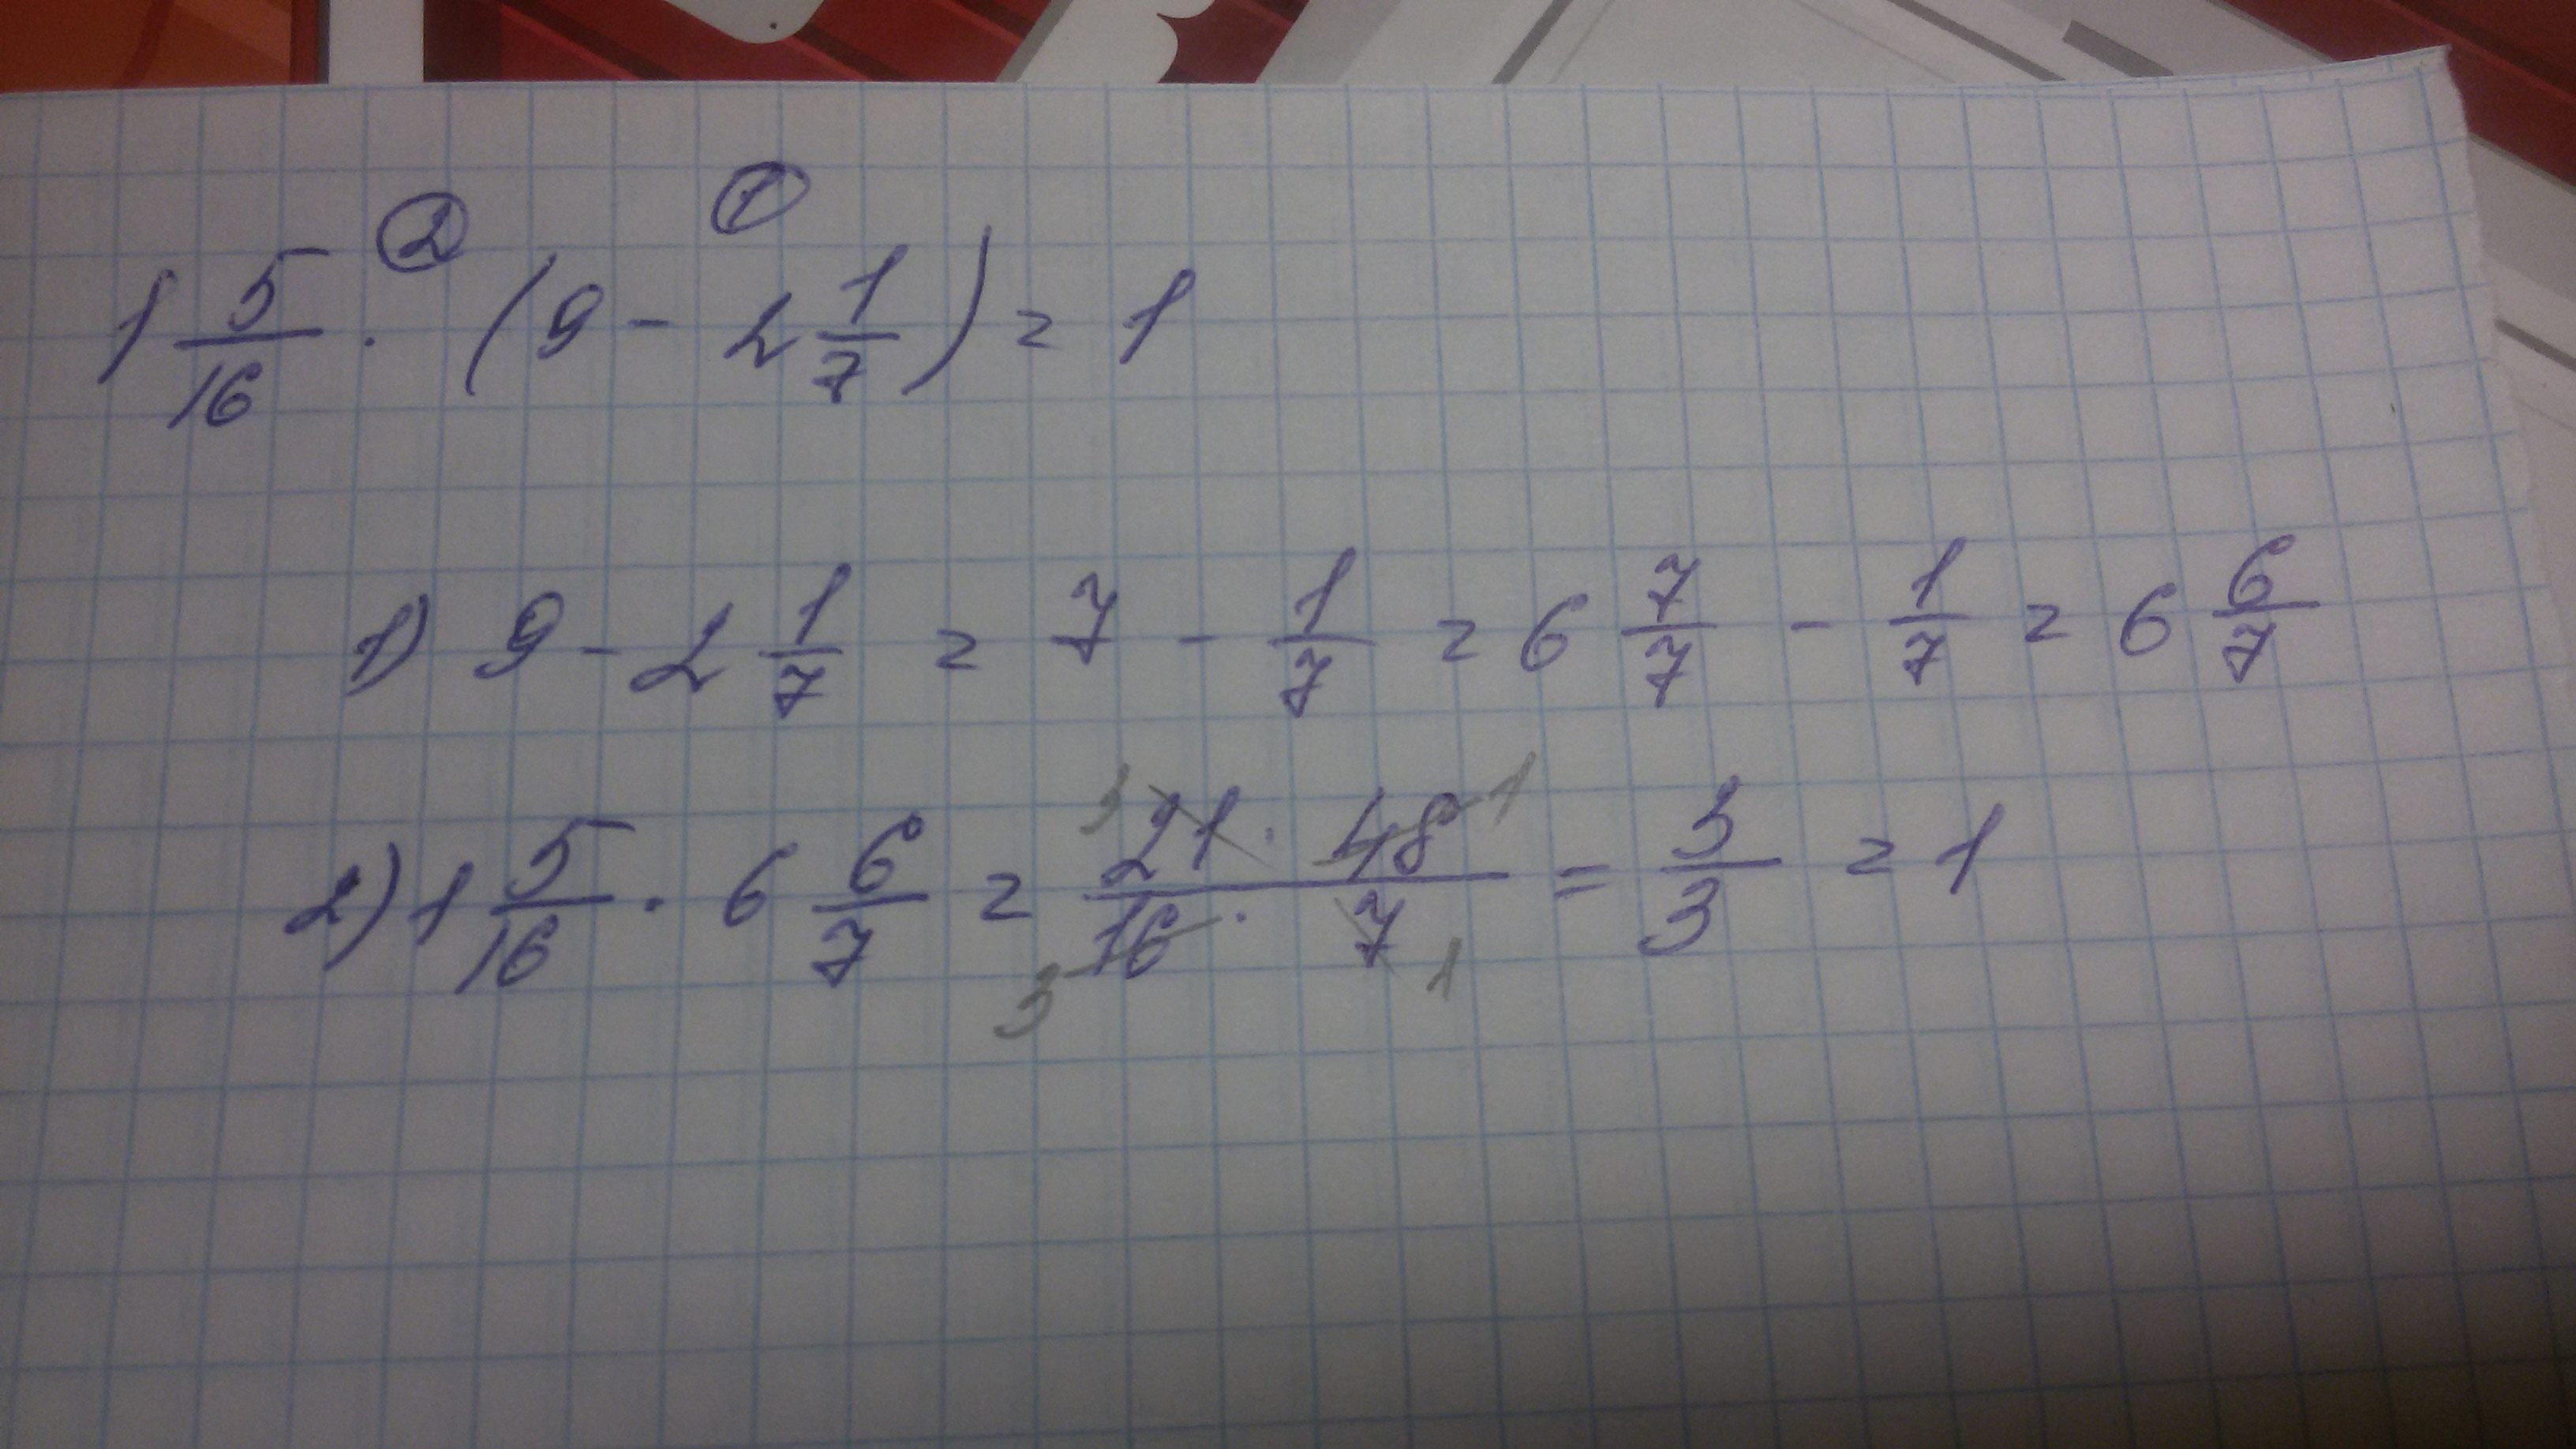 ② ①
1 5/16 · (9 - 2 1/7) = 1
1) 9 - 2 1/7 = 7 - 1/7 = 6 7/7 - 1/7 = 6 6/7
2) 1 5/16 · 6 6/7 = 3 21 · 48 1 / 3 16 · 7 1 = 3/3 = 1